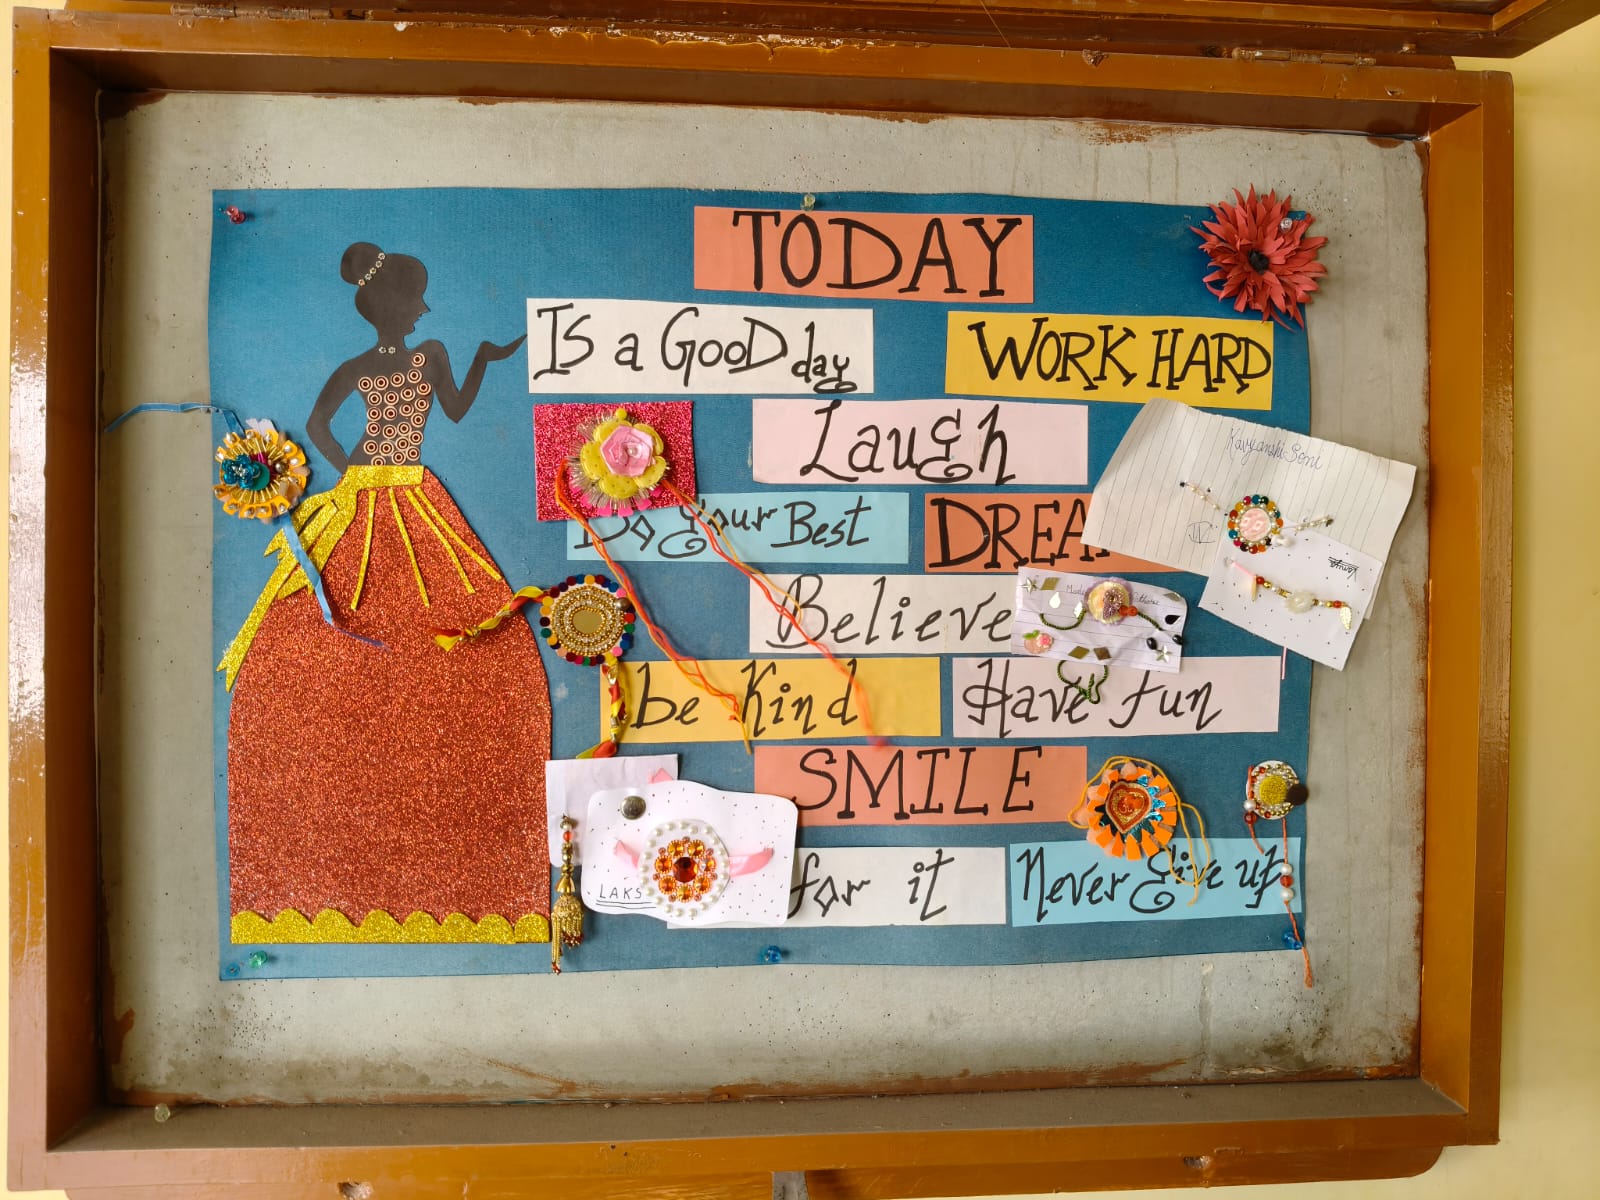 TODAY
Is a GooD day
WORK HARD
Laugh
Do your Best
DREA
Believe
be Kind
Have fun
SMILE
for it
Never Give up
Kavyanshi Soni
IV
Vanya
LAKS